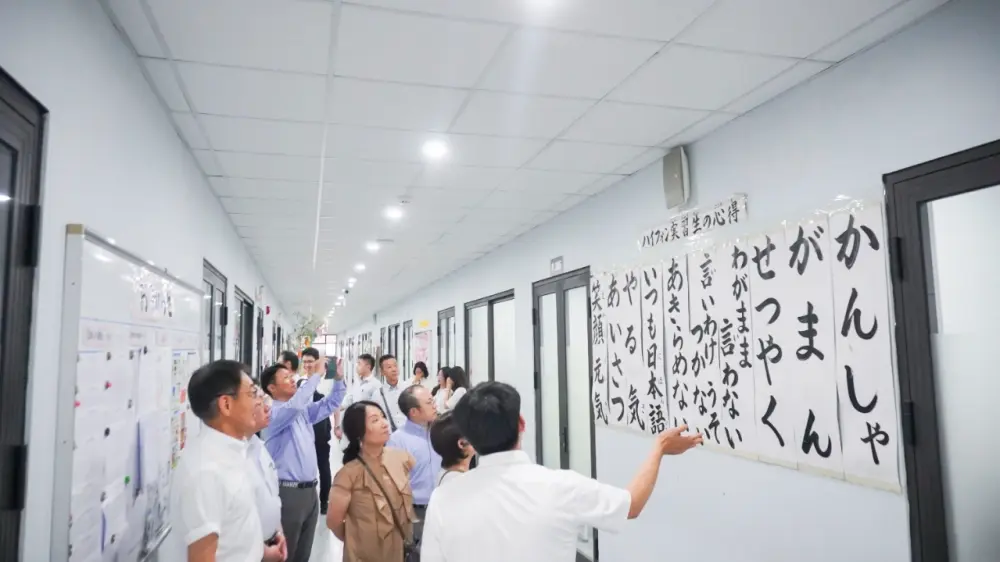 ハイフィン実習生の心得
かんしゃ
がまん
せつやく
わがまま
言わない
言いわけ うそ
つかない
あきらめない
いつも日本語
やる気
あいさつ
笑顔元気